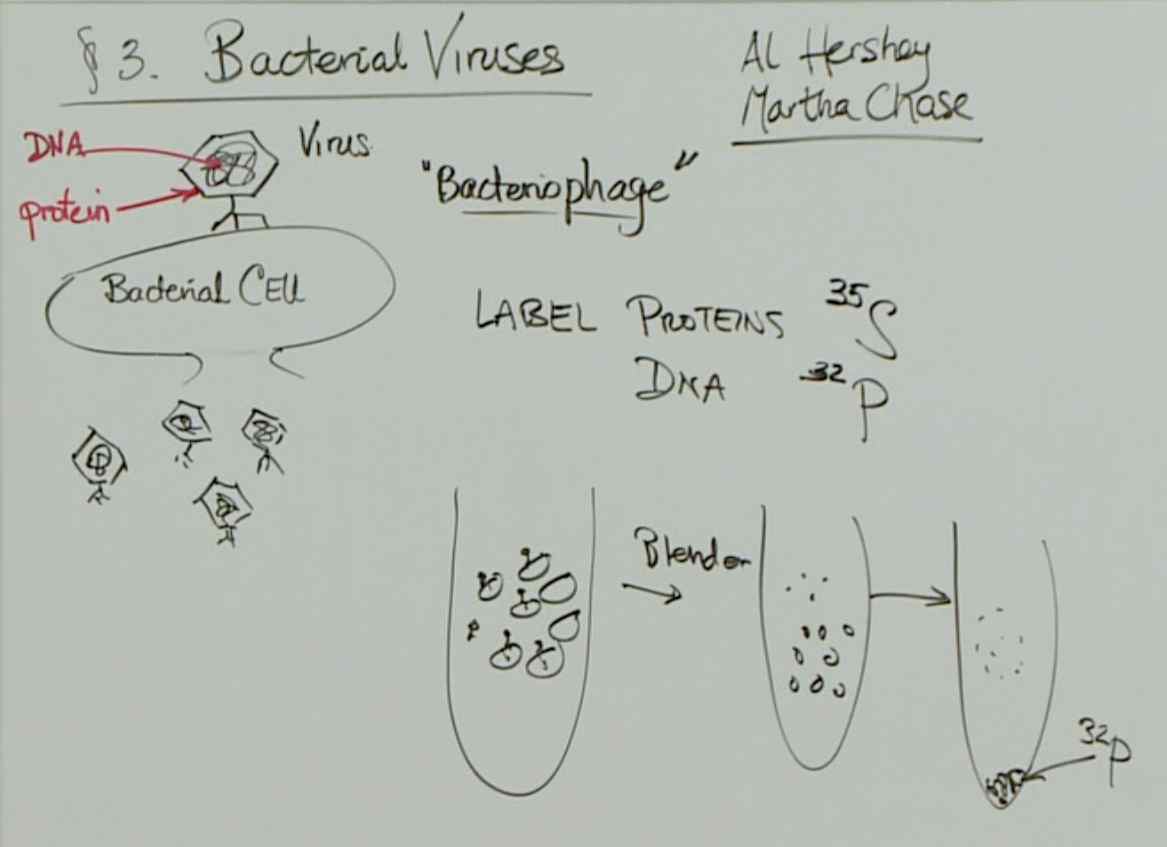 § 3. Bacterial Viruses
Al Hershey
Martha Chase
DNA
Virus
protein
"Bacteriophage"
Bacterial Cell
LABEL PROTEINS ³⁵S
DNA ³²P
Blender
³²P